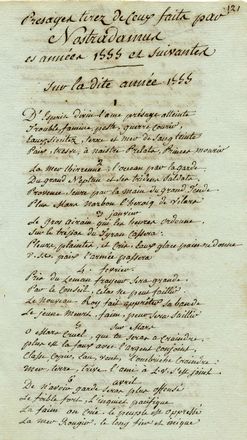 121
Presages tirez de Ceux faits par
Nostradamus
es années 1555 et suivantes
Sur la dite année 1555
1
D'Esprit divin l'ame presage atteinte
Trouble, famine, peste, guerre courir
Eaux, siccitez, terre et mer de sang teinte
Paix, tresve, à naistre Prelats, Princes mourir
2
La mer Tirrenne, l'ocean par la garde
Du grand Neptun et ses tridens soldats
Provence seure par la main du grand Tende
Plus Mars Narbon l'heroiq de Vilars
3 janvier
Le gros airain qui les heures ordonne
Sur le trespas du Tyran cassera
Pleurs, plaintes, et cris. Eaux, glace pain ne donne
V. S. C. paix l'armée passera
4. fevrier.
Pres du Leman frayeur sera grande
Par le Conseil, cela ne peut faillir
Le nouveau Roy fait apprester sa bande
Le jeune meurt, faim, peur fera faillir
5 Sur Mars
O Mars cruel, que tu seras à craindre
plus est la faux avec l'argent conjoint
Classe, copie, Eau, vent, l'ombriche craindre
Mer, terre, treve l'ami à L. V. s'est joint.
avril
De n'avoir garde seras plus offensé
Le foible fort, l'inquiet pacifique
La faim on crie le peuple est oppressé
La mer Rougir, le long fier et inique